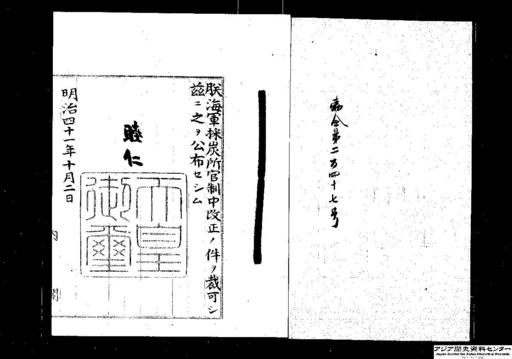 勅令第二百四十七号
朕海軍採炭所官制中改正ノ件ヲ裁可シ
茲ニ之ヲ公布セシム
睦仁
天皇
御璽
明治四十一年十月二日
内閣
アジア歴史資料センター
Japan Center for Asian Historical Records